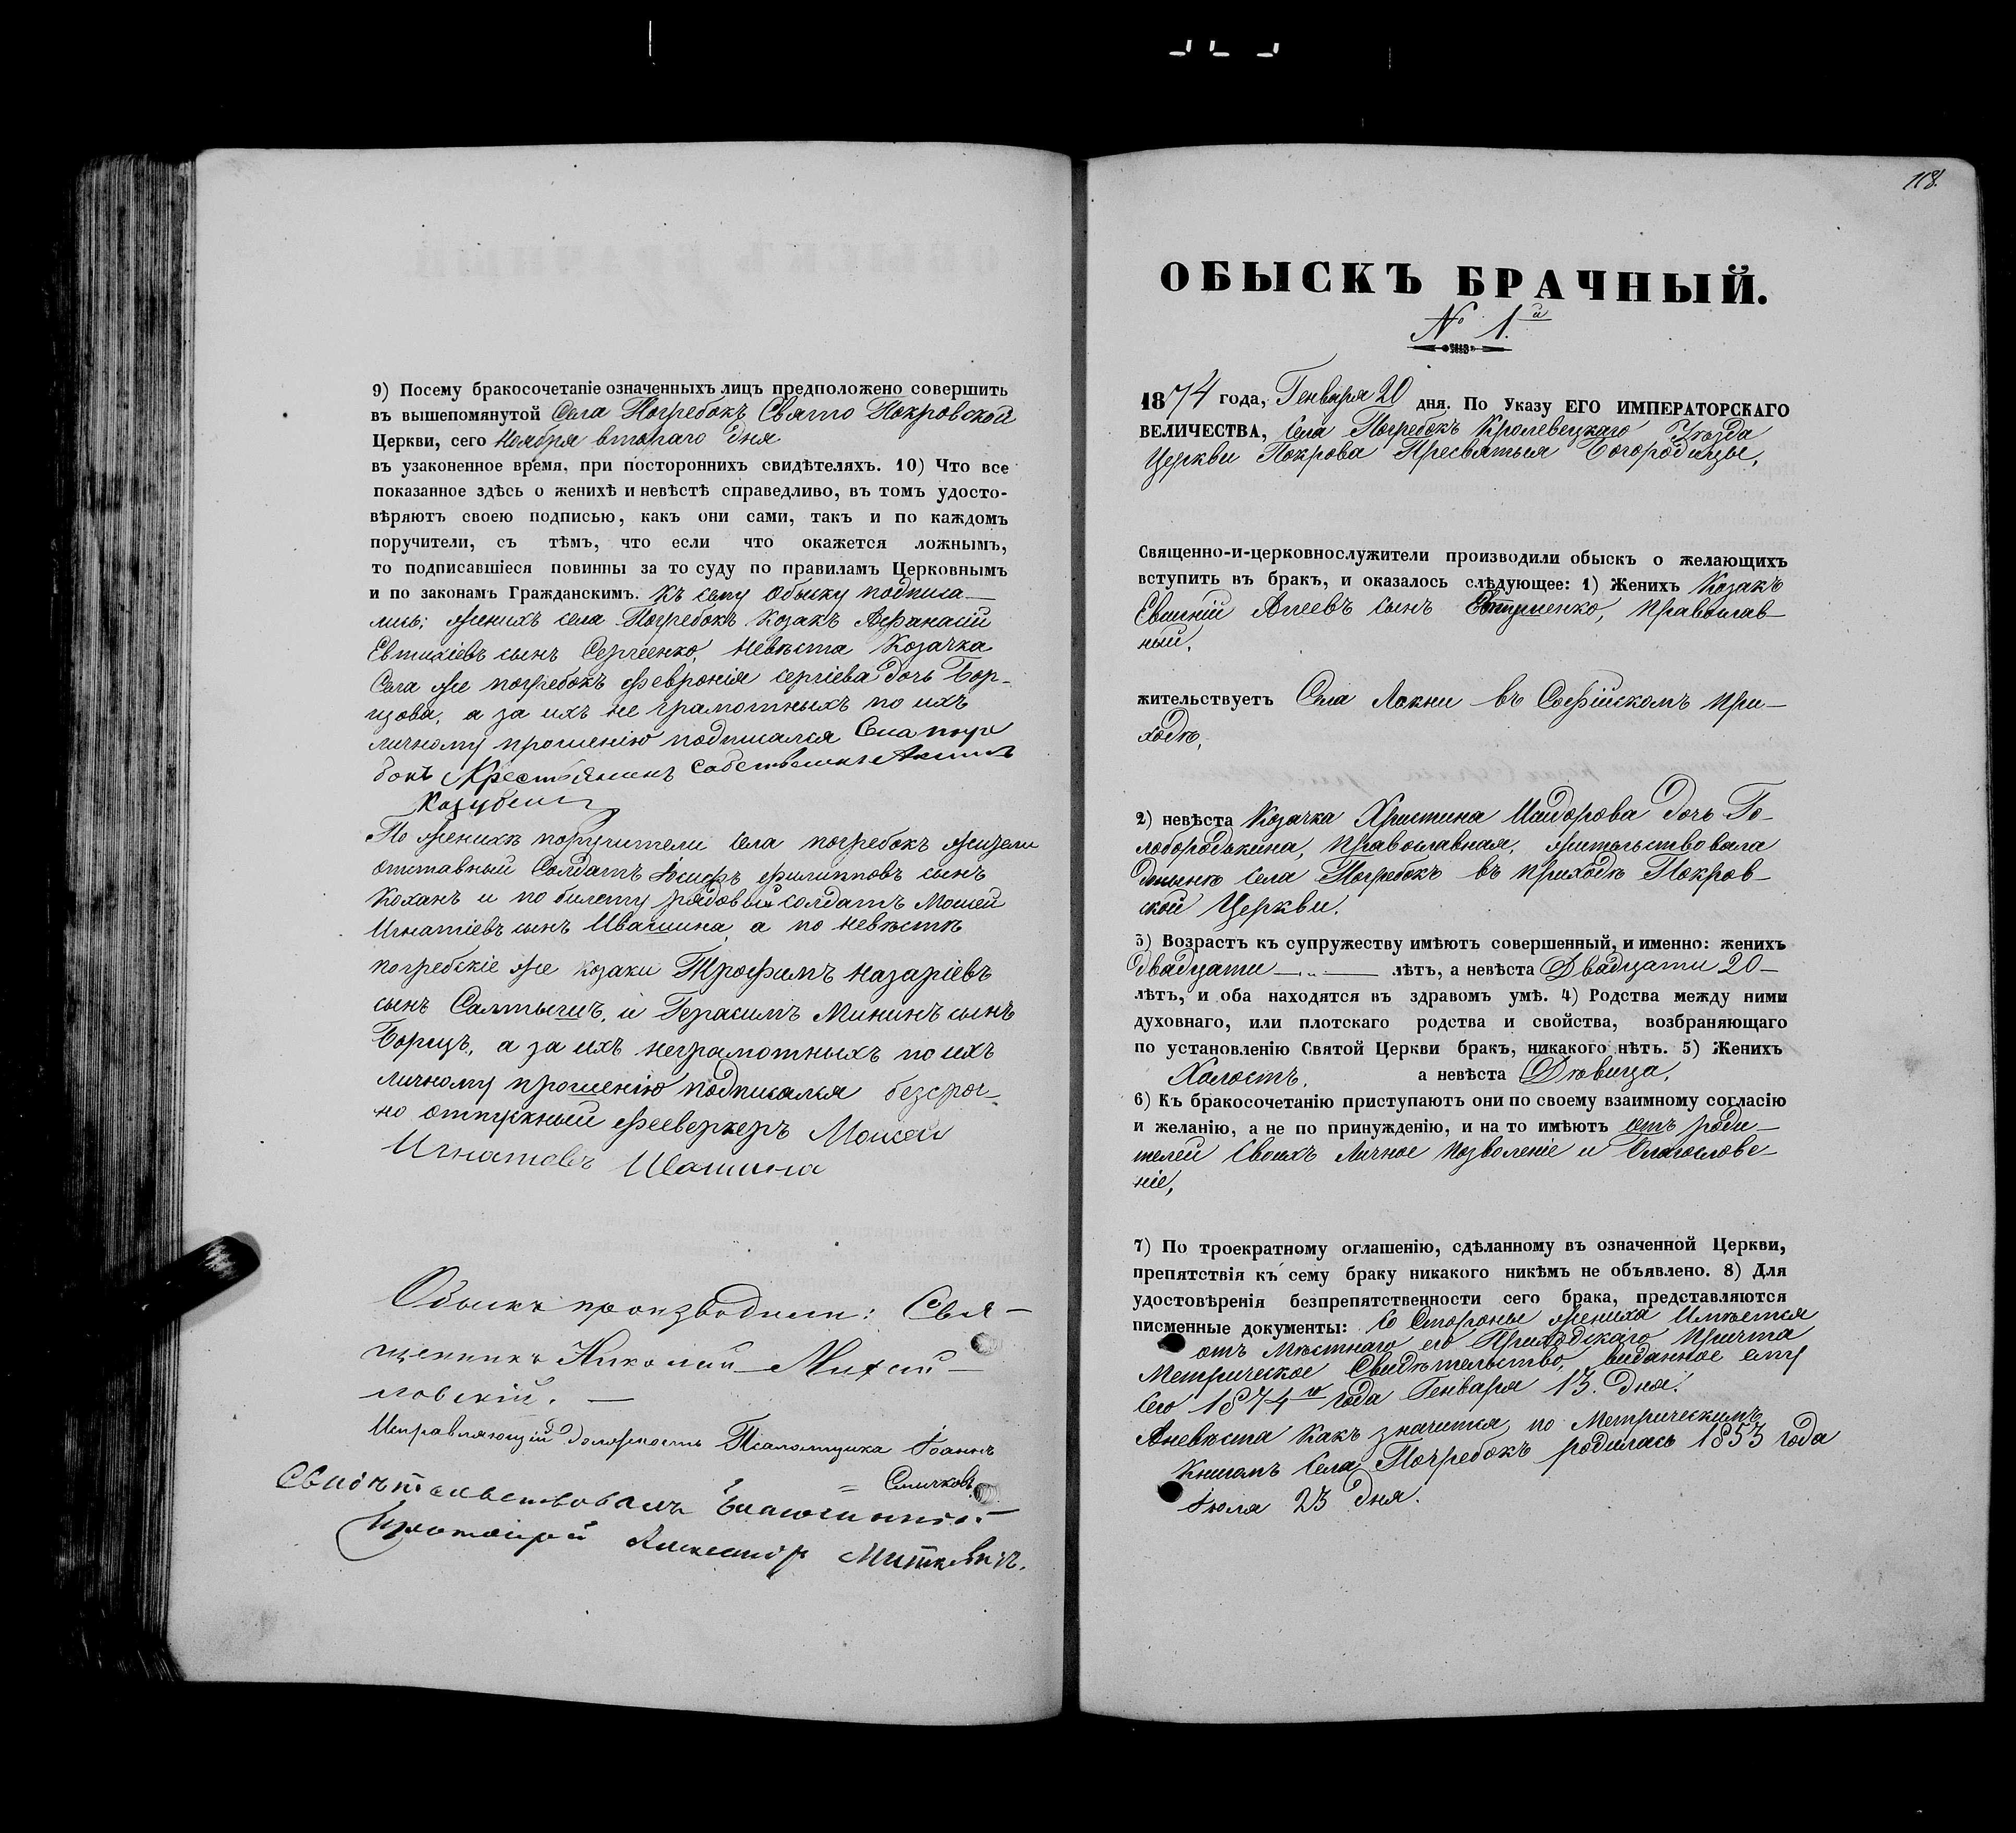 9) Посему бракосочетаніе означенныхъ лицъ предположено совершить
въ вышепомянутой Села Погребокъ Свято Покровской
Церкви, сего Ноября втораго дня
въ узаконенное время, при постороннихъ свидѣтеляхъ. 10) Что все
показанное здѣсь о женихѣ и невѣстѣ справедливо, въ томъ удосто-
вѣряютъ своею подписью, какъ они сами, такъ и по каждомъ
поручители, съ тѣмъ, что если что окажется ложнымъ,
то подписавшіеся повинны за то суду по правиламъ Церковнымъ
и по законамъ Гражданскимъ. Къ сему обыску подписа-
лись: женихъ села Погребокъ Козакъ Афанасій
Евтихіевъ сынъ Сергеенко, невѣста Козачка
Села же погребокъ Февронія Сергіева дочь Бор-
цова, а за ихъ не грамотныхъ по ихъ
личному прошенію подписался Села погре
бокъ Крестьянинъ Собственикъ
По женихѣ поручители села погребокъ жители
отставный Солдатъ Іосифъ Филипповъ сынъ
Коханъ и по билету рядовый солдатъ Моисей
Игнатіевъ сынъ Ивашина, а по невѣстѣ
погребскіе же козаки Трофимъ Назаріевъ
сынъ Салтышъ, и Герасимъ Мининъ сынъ
Борецъ, а за ихъ неграмотныхъ по ихъ
личному прошенію подписался безсроч-
но отпускный фееверкеръ Моисей
Игнатовъ Ивашина
Обыскъ производили: Свя-
щенникъ Николай Михай-
ловскій.
Исправляющій должность Псаломщика Іоаннъ
Сличковъ
Свидѣтельствовалъ Благочинный
Протоіерей Александръ Миткевичъ.
118.
ОБЫСКЪ БРАЧНЫЙ.
№ 1.й
1874 года, Генваря 20 дня. По Указу ЕГО ИМПЕРАТОРСКАГО
ВЕЛИЧЕСТВА, Села Погребокъ Кролевецкаго Уѣзда
Церкви Покрова Пресвятыя Богородицы,
Священно-и-церковнослужители производили обыскъ о желающихъ
вступить въ бракъ, и оказалось слѣдующее: 1) Женихъ Козакъ
сынъ Евтушенко, православ-
ный,
жительствуетъ Села Локни въ Софійскомъ при-
ходѣ,
2) невѣста Козачка Христина Исидорова дочь Го-
лобородькина, православная, жительствовала
донынѣ села Погребокъ въ приходѣ Покров-
ской Церкви.
3) Возрастъ къ супружеству имѣютъ совершенный, и именно: женихъ
двадцати лѣтъ, а невѣста Двадцати 20-
лѣтъ, и оба находятся въ здравомъ умѣ. 4) Родства между ними
духовнаго, или плотскаго родства и свойства, возбраняющаго
по установленію Святой Церкви бракъ, никакого нѣтъ. 5) Женихъ
Холостъ, а невѣста Дѣвица,
6) Къ бракосочетанію приступаютъ они по своему взаимному согласію
и желанію, а не по принужденію, и на то имѣютъ отъ роди-
телей своихъ личное позволеніе и благослове-
ніе,
7) По троекратному оглашенію, сдѣланному въ означенной Церкви,
препятствія къ сему браку никакого никѣмъ не объявлено. 8) Для
удостовѣренія безпрепятственности сего брака, представляются
писменные документы: Со Стороны жениха имѣется
отъ Мѣстнаго его Приходскаго причта
Метрическое Свидѣтельство, виданное ему
сего 1874го года Генваря 13. дня.
Аневѣста какъ значится, по Метрическимъ
Книгамъ Села Погребокъ родилась 1853 года
Іюля 23 дня.